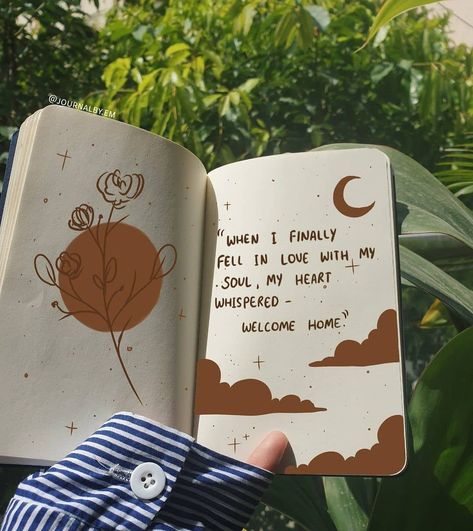 @JOURNALBY.EM
"WHEN I FINALLY
FELL IN LOVE WITH MY
SOUL, MY HEART
WHISPERED -
WELCOME HOME."